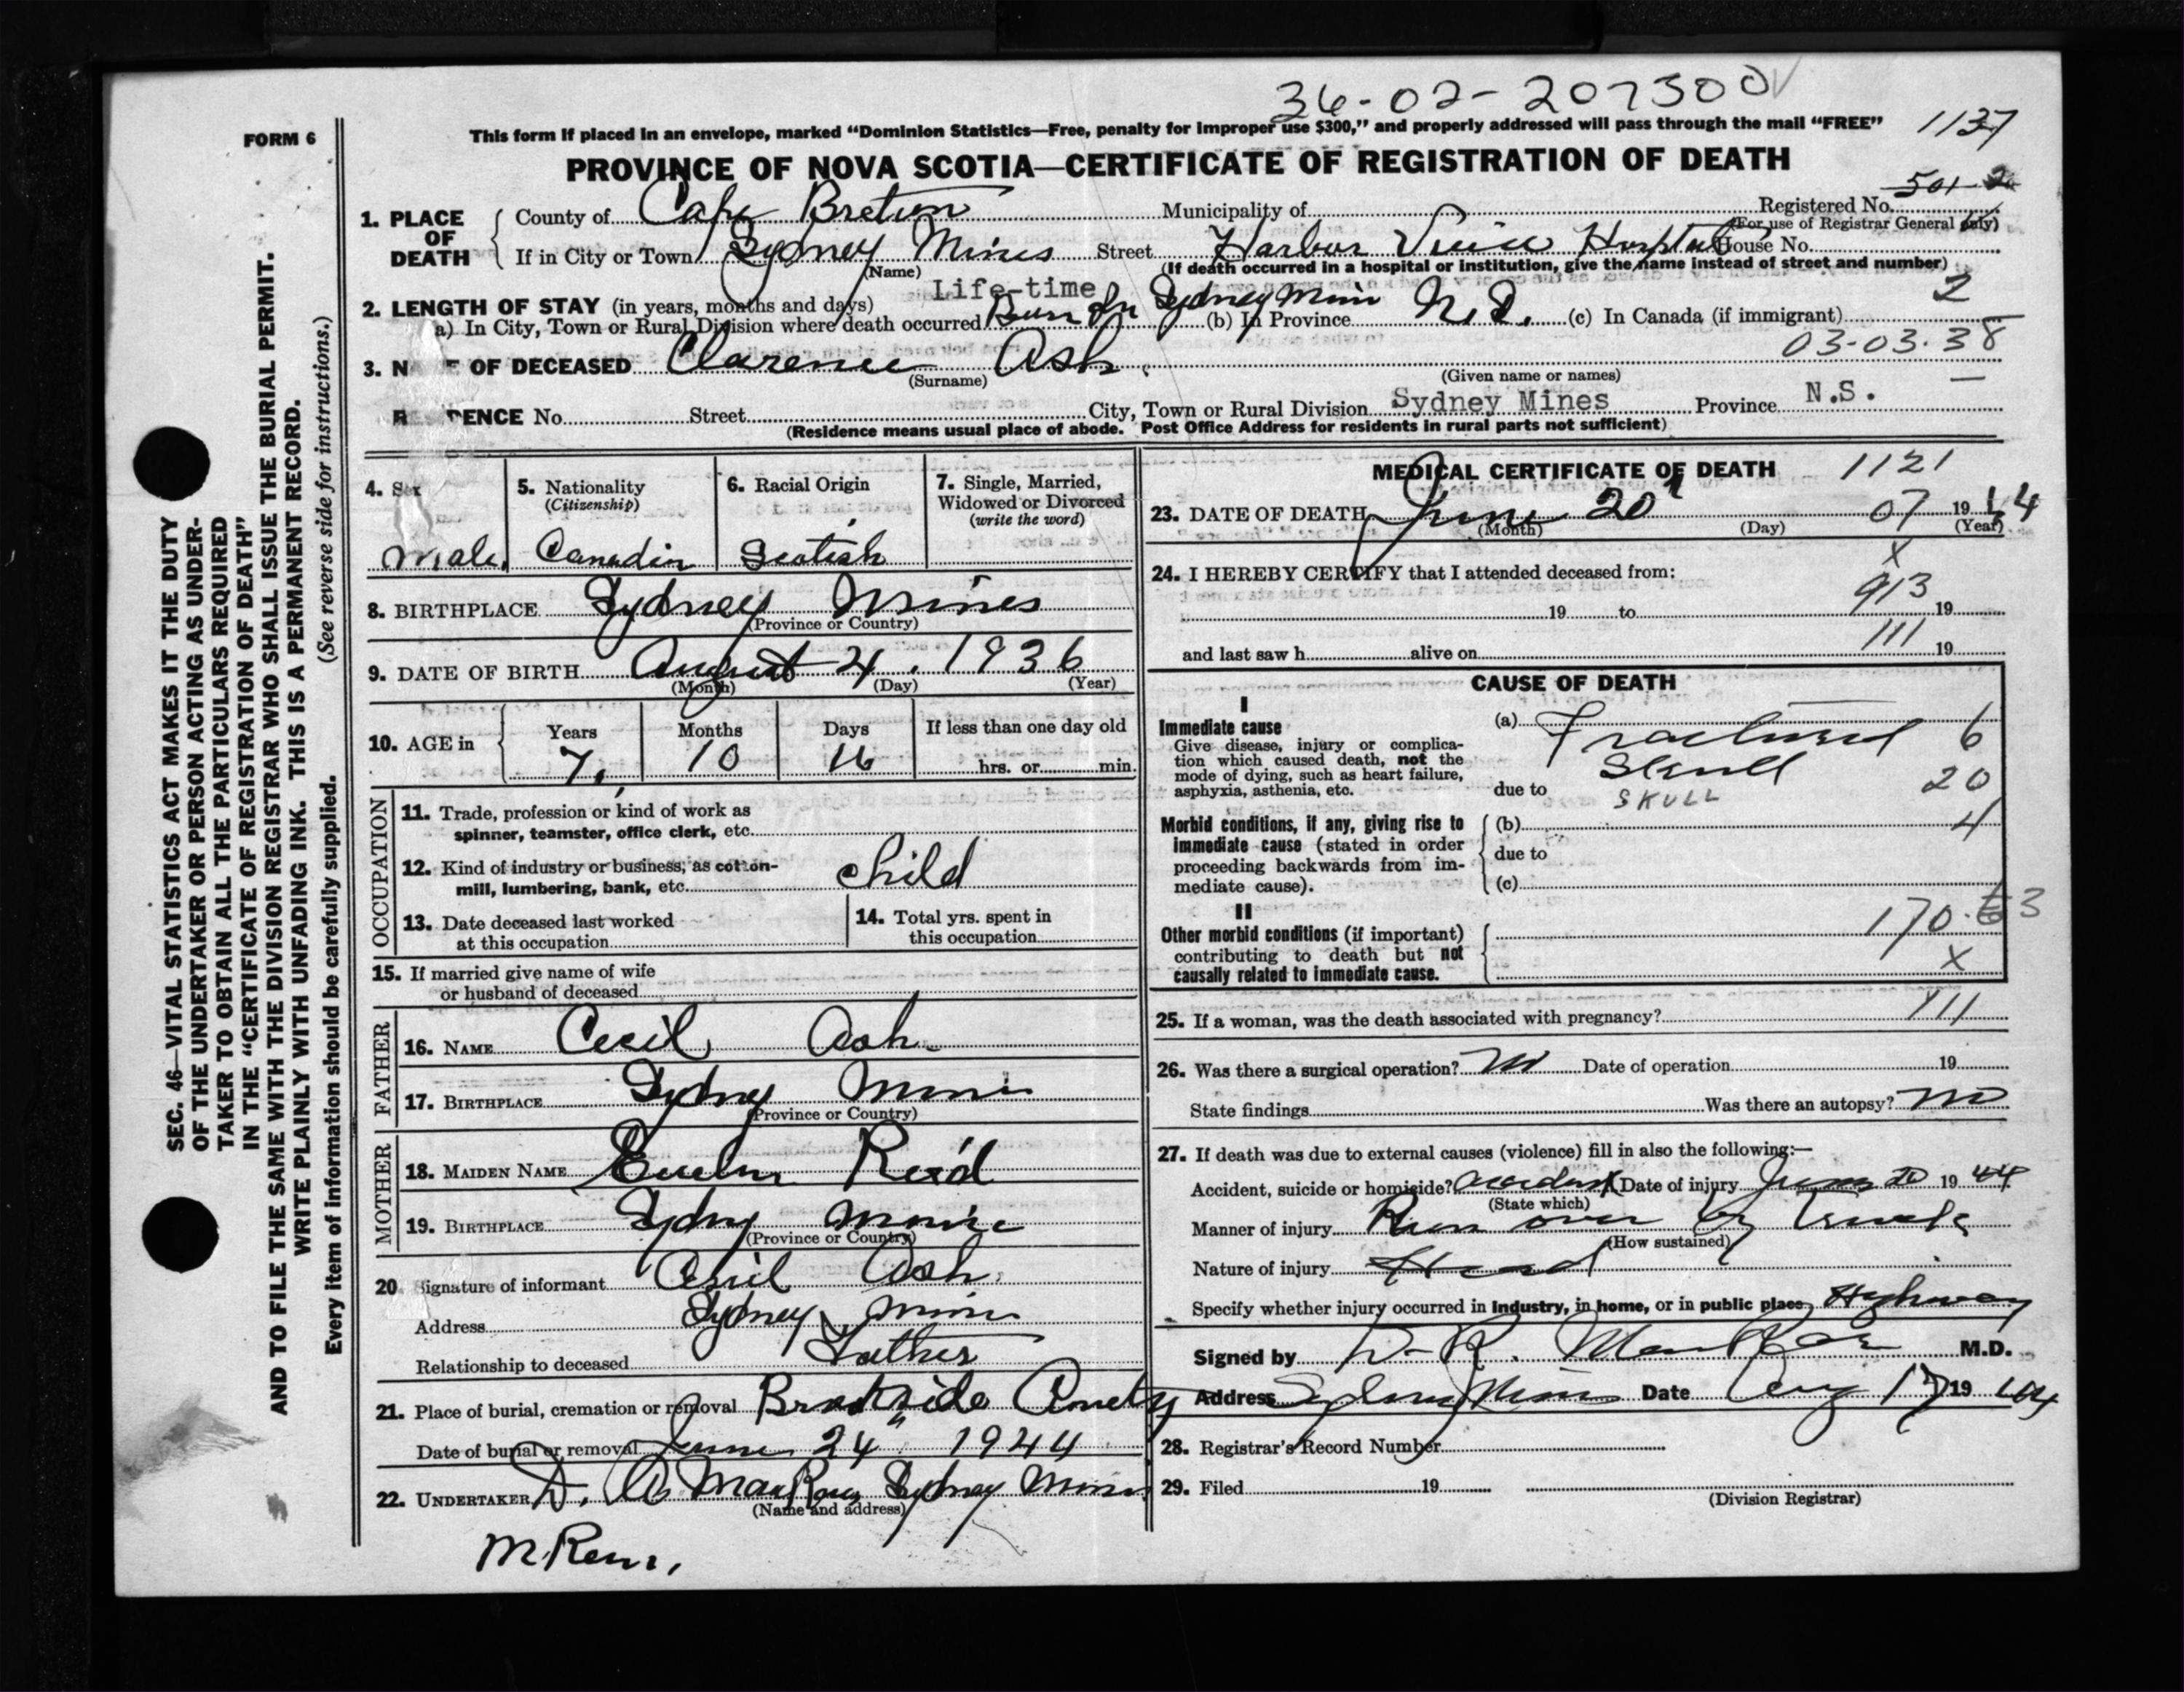 36-02-207300
FORM 6
This form if placed in an envelope, marked “Dominion Statistics—Free, penalty for improper use $300,” and properly addressed will pass through the mail “FREE”
1137
PROVINCE OF NOVA SCOTIA—CERTIFICATE OF REGISTRATION OF DEATH
1. PLACE OF DEATH
County of Cape Breton Municipality of Registered No. 501-2
(For use of Registrar General only)
If in City or Town Sydney Mines Street Harbor View Hospital House No.
(Name) (If death occurred in a hospital or institution, give the name instead of street and number)
2. LENGTH OF STAY (in years, months and days) Life-time
a) In City, Town or Rural Division where death occurred Born In Sydney Mines (b) In Province N.S. (c) In Canada (if immigrant) 2
03-03-38
3. NAME OF DECEASED Clarence Ash
(Surname) (Given name or names)
RESIDENCE No. Street City, Town or Rural Division Sydney Mines Province N.S.
(Residence means usual place of abode. Post Office Address for residents in rural parts not sufficient)
4. Sex
Male
5. Nationality
(Citizenship)
Canadin
6. Racial Origin
Scotish
7. Single, Married, Widowed or Divorced
(write the word)
8. BIRTHPLACE Sydney Mines
(Province or Country)
9. DATE OF BIRTH August 4, 1936
(Month) (Day) (Year)
10. AGE in
Years 7
Months 10
Days 16
If less than one day old
hrs. or min.
OCCUPATION
11. Trade, profession or kind of work as
spinner, teamster, office clerk, etc.
12. Kind of industry or business, as cotton-
mill, lumbering, bank, etc. child
13. Date deceased last worked
at this occupation
14. Total yrs. spent in
this occupation
15. If married give name of wife
or husband of deceased
FATHER
16. NAME Cecil Ash
17. BIRTHPLACE Sydney Mines
(Province or Country)
MOTHER
18. MAIDEN NAME Reid
19. BIRTHPLACE Sydney Mines
(Province or Country)
20. Signature of informant Cecil Ash
Address Sydney Mines
Relationship to deceased Father
21. Place of burial, cremation or removal Brookside
Date of burial or removal June 24" 1944
22. UNDERTAKER D. A. Sydney Mines
(Name and address)
MEDICAL CERTIFICATE OF DEATH 1121
23. DATE OF DEATH June 20 07 1944
(Month) (Day) (Year)
X
24. I HEREBY CERTIFY that I attended deceased from:
913
19 to 19
111
and last saw h alive on 19
CAUSE OF DEATH
I
Immediate cause
Give disease, injury or complica-
tion which caused death, not the
mode of dying, such as heart failure,
asphyxia, asthenia, etc.
(a) Fractured 6
Skull
due to SKULL 20
Morbid conditions, if any, giving rise to
immediate cause (stated in order
proceeding backwards from im-
mediate cause).
(b) 4
due to
(c)
II
Other morbid conditions (if important)
contributing to death but not
causally related to immediate cause.
170. 3
X
111
25. If a woman, was the death associated with pregnancy?
26. Was there a surgical operation? no Date of operation 19
State findings Was there an autopsy? no
27. If death was due to external causes (violence) fill in also the following:—
Accident, suicide or homicide? accident Date of injury June 20 1944
(State which)
Manner of injury Run over by truck
(How sustained)
Nature of injury Head
Specify whether injury occurred in industry, in home, or in public place Highway
Signed by M.D.
Address Sydney Mines Date Aug 17 1944
28. Registrar's Record Number
29. Filed 19
(Division Registrar)
SEC. 46—VITAL STATISTICS ACT MAKES IT THE DUTY
OF THE UNDERTAKER OR PERSON ACTING AS UNDER-
TAKER TO OBTAIN ALL THE PARTICULARS REQUIRED
IN THE “CERTIFICATE OF REGISTRATION OF DEATH”
AND TO FILE THE SAME WITH THE DIVISION REGISTRAR WHO SHALL ISSUE THE BURIAL PERMIT.
WRITE PLAINLY WITH UNFADING INK. THIS IS A PERMANENT RECORD.
Every item of information should be carefully supplied. (See reverse side for instructions.)